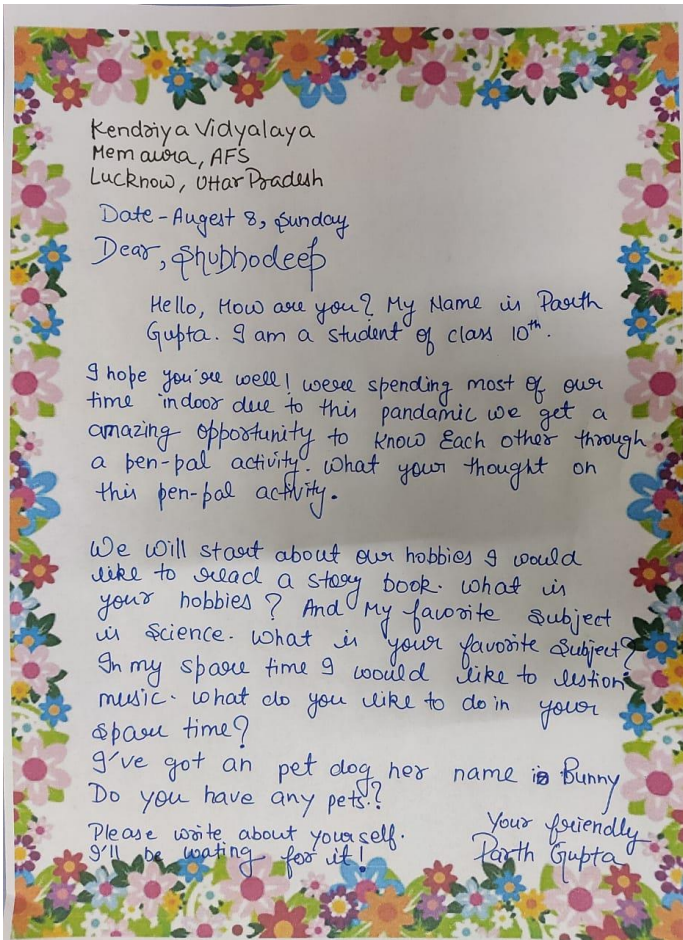 Kendriya Vidyalaya
Memaura, AFS
Lucknow, Uttar Pradesh
Date - Augest 8, Sunday
Dear, Shubhodeep
Hello, How are you? My Name is Parth
Gupta. I am a student of class 10th.
I hope you're well! were spending most of our
time indoor due to this pandamic we get a
amazing opportunity to know Each other through
a pen-pal activity. what your thought on
this pen-pal activity.
We will start about our hobbies I would
like to read a story book. what is
your hobbies? And My favorite Subject
is Science. what is your favorite Subject?
In my spare time I would like to lestion
music. what do you like to do in your
spare time?
I've got an pet dog her name is Bunny
Do you have any pets.?
Please write about yourself.
I'll be wating for it!
Your friendly
Parth Gupta